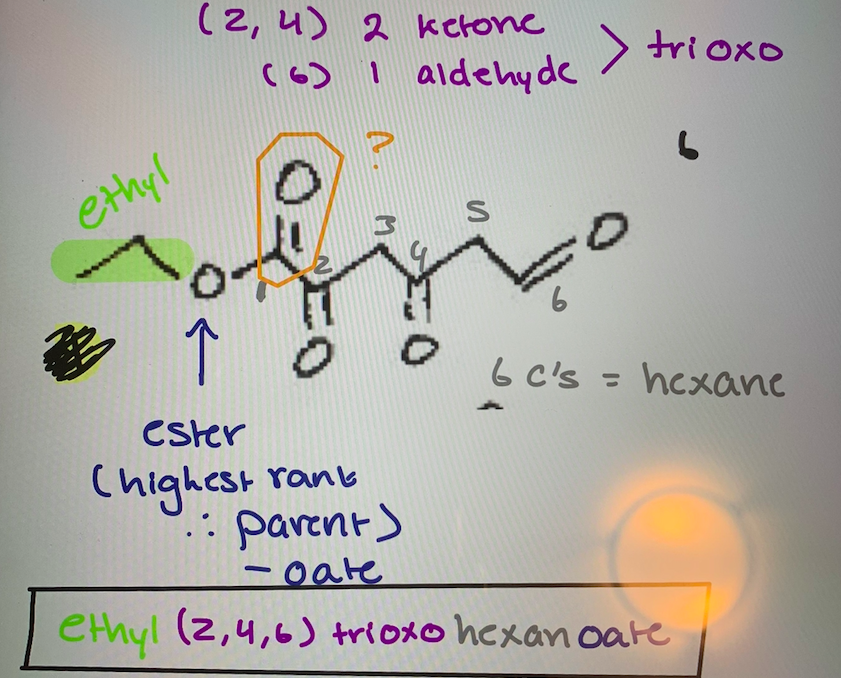 (2, 4) 2 ketone
(6) 1 aldehyde > trioxo
6
?
ethyl
O
3
5
O
O
2
4
1
6
O
O
6 C's = hexane
ester
(highest rank
∴ parent)
- oate
ethyl (2,4,6) trioxo hexanoate